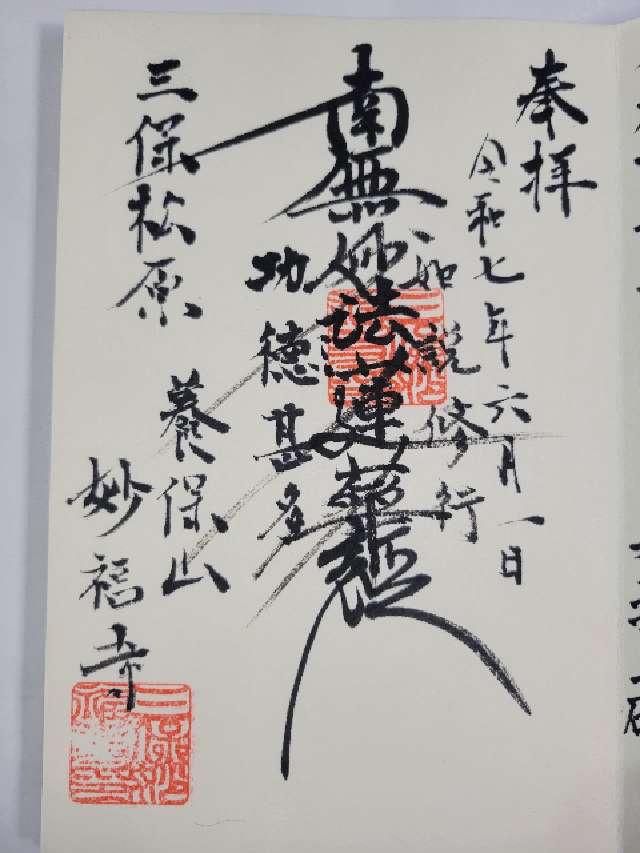 奉拝
令和七年六月一日
如説修行
南無妙法蓮華経
功徳甚多
三保松原
養保山
妙福寺